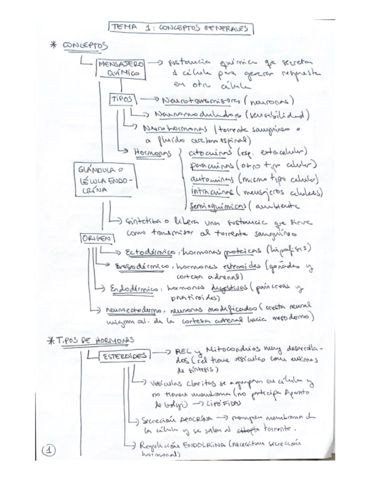 TEMA 1: CONCEPTOS GENERALES
* CONCEPTOS
MENSAJERO QUÍMICO → sustancia química que secreta
1 célula para generar respuesta
en otra célula
TIPOS → Neurotransmisores (neuronas)
→ Neuromoduladores (sensibilidad)
→ Neurohormonas (torrente sanguíneo o
a fluido cerebroespinal)
→ Hormonas
citocrinas (esp. extracelular)
paracrinas (otro tipo celular)
autocrinas (mismo tipo celular)
intracrinas (mensajeros celulares)
Semioquímicos (ambiente
GLÁNDULA O CÉLULA ENDOCRINA
→ sintetiza o libera una sustancia que sirve
como transmisor al torrente sanguíneo
ORIGEN
→ Ectodérmico: hormonas proteicas (hipófisis)
→ hormonas esteroides (gónadas y
corteza adrenal)
→ Endodérmico: hormonas (páncreas y
paratiroides)
→ Neuroectodermo: neuronas modificadas (cresta neural
de la corteza adrenal hacia mesodermo)
* TIPOS DE HORMONAS
ESTEROIDES → REL y Mitocondrias muy desarrolla-
dos (cel tiene vesículas con enzimas
de síntesis)
→ Vesículas claritas se agrupan en célula y
no tienen membrana (no participa Aparato
de Golgi) → LIPÓFILAS
→ Secreción APOCRINA → rompen membrana de
la célula y se salen al torrente.
→ Regulación ENDOCRINA (necesitan secreción
hormonal)
1